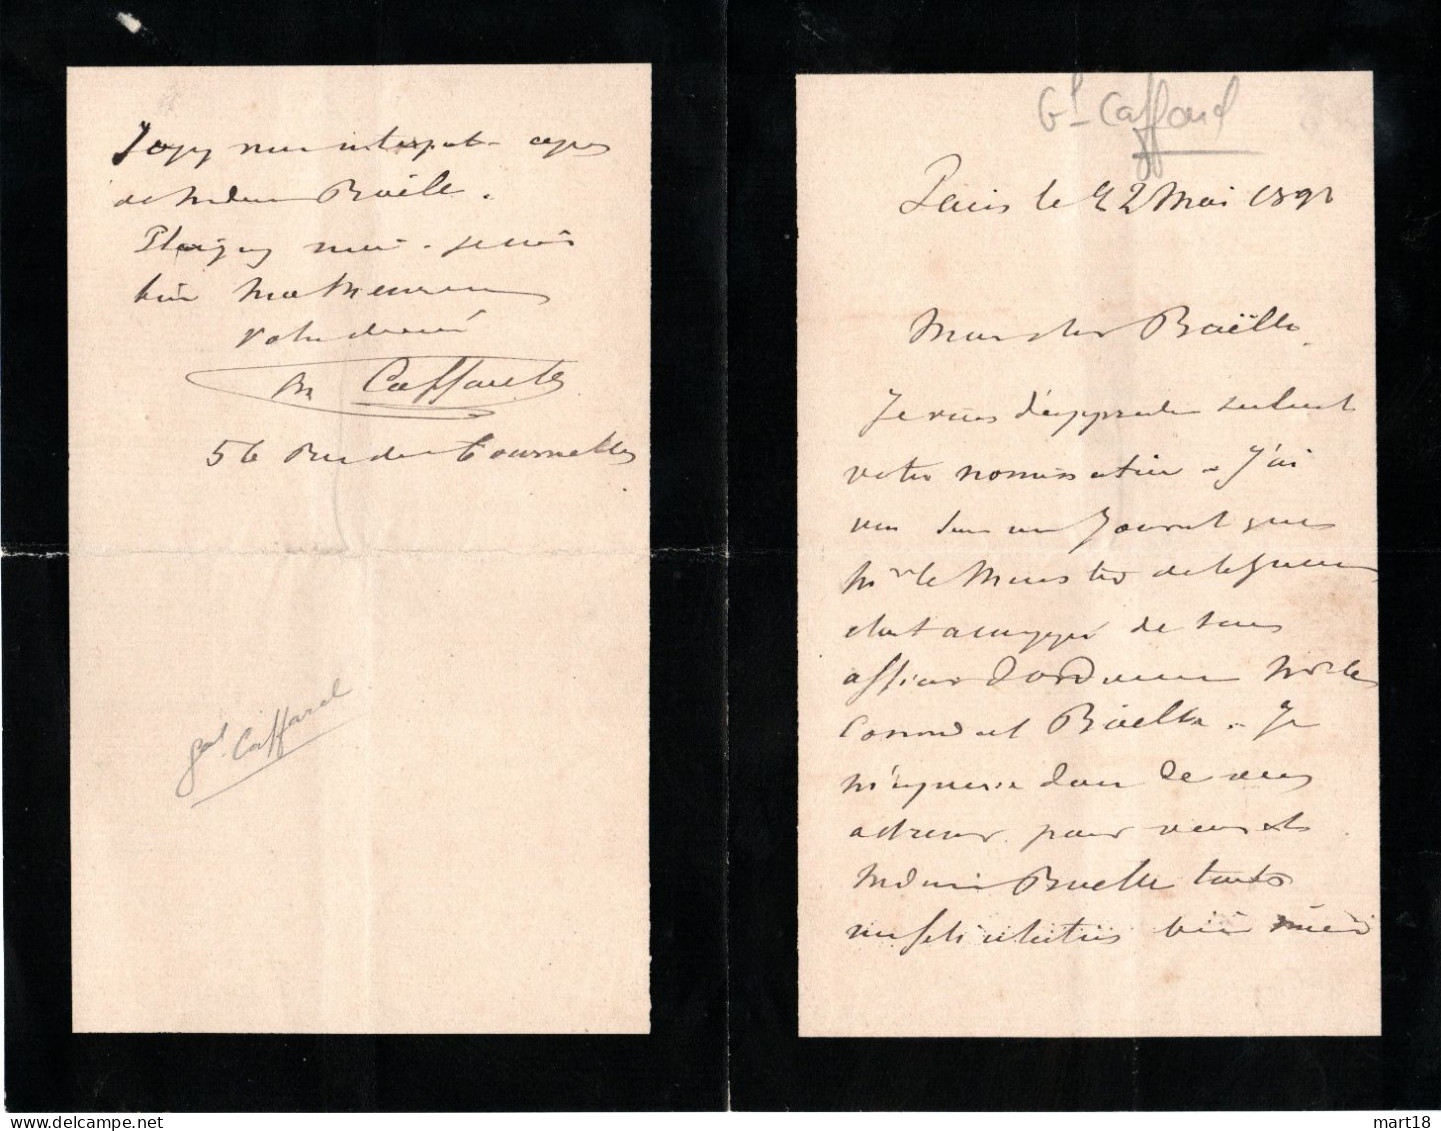 Gl Caffarel
Paris le 22 Mai 1891
Mon cher Baëlle
Je viens d'apprendre seulement
votre nomination - J'ai
vu dans un Journal que
Mr le Ministre de la guerre
était accompagné de son
officier d'ordonnance Mr le
Command. Baëlle. Je
m'empresse donc de vous
adresser pour vous et
Madame Baëlle toutes
mes félicitations bien
Soyez mon interprète auprès
de Madame Baëlle.
Plaignez moi - je suis
bien malheureux
Votre dévoué
Caffarel
56 Rue des Tournelles
Gal Caffarel
mart18